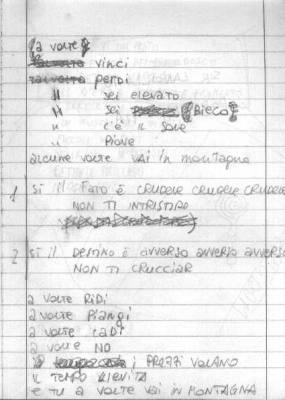 a volte
talvolta vinci
talvolta perdi
" sei elevato
" sei bieco
" c'è il sole
" Piove
alcune volte vai in montagna
1 Si il FATO È CRUDELE CRUDELE CRUDELE
NON TI INTRISTIRE
2 Si il DESTINO È AVVERSO AVVERSO AVVERSO
NON TI CRUCCIAR
a volte RiDi
a volte Piangi
a volte CaDi
a volte NO
i PRAZZI VOLANO
IL TEMPO LIEVITA
E TU A VOLTE VAI IN MONTAGNA